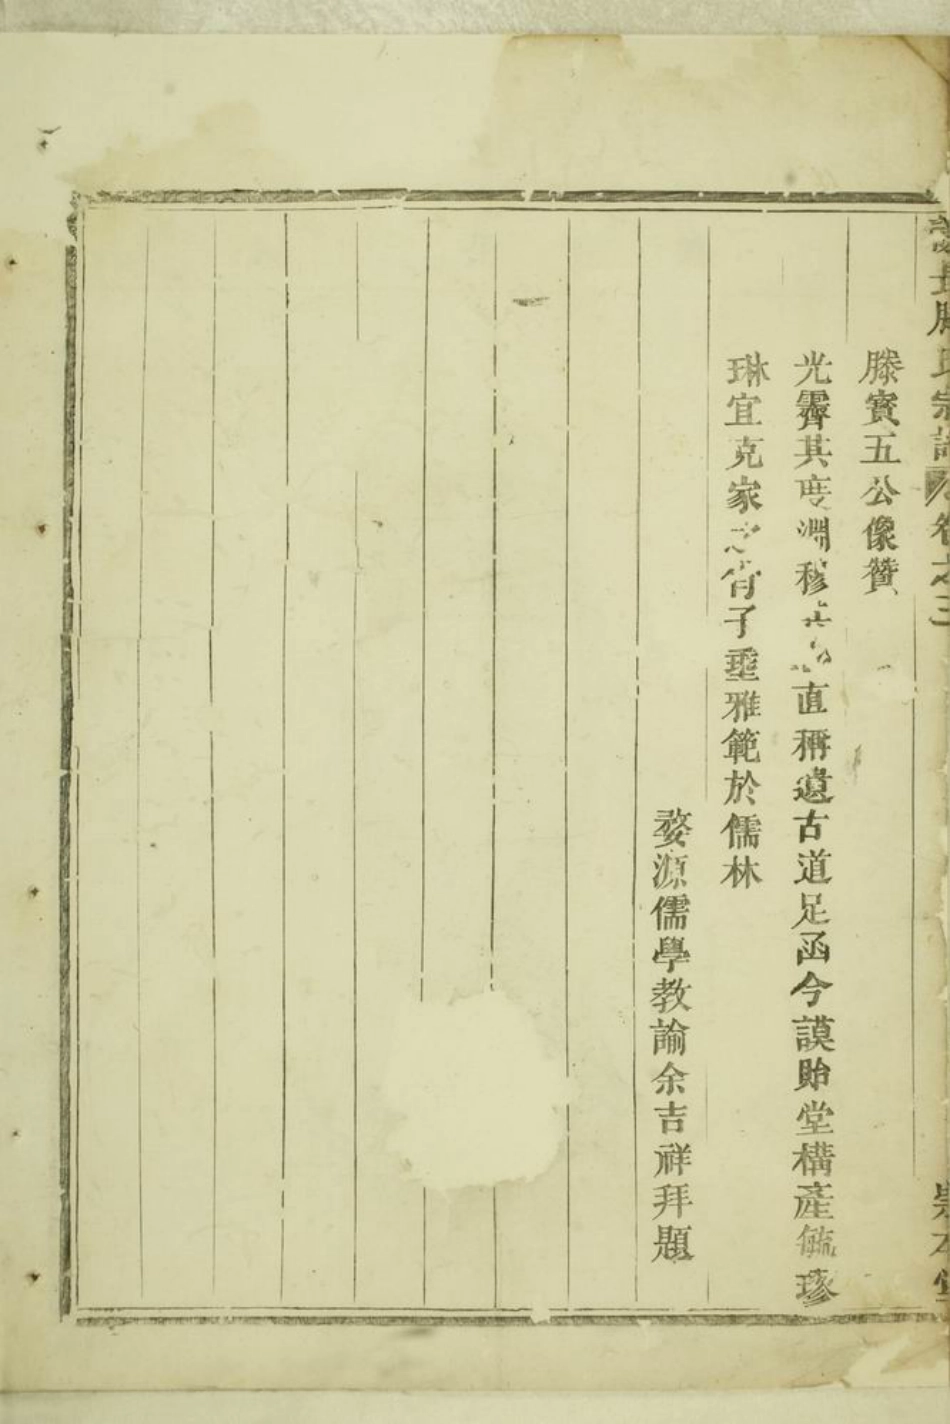 滕氏宗譜 卷之三 崇本堂
滕賓五公像贊
光霽其度淵穆其直稱遺古道足函今謨貽堂構產毓琢
琳宜克家之肖子垂雅範於儒林
婺源儒學教諭余吉祥拜題